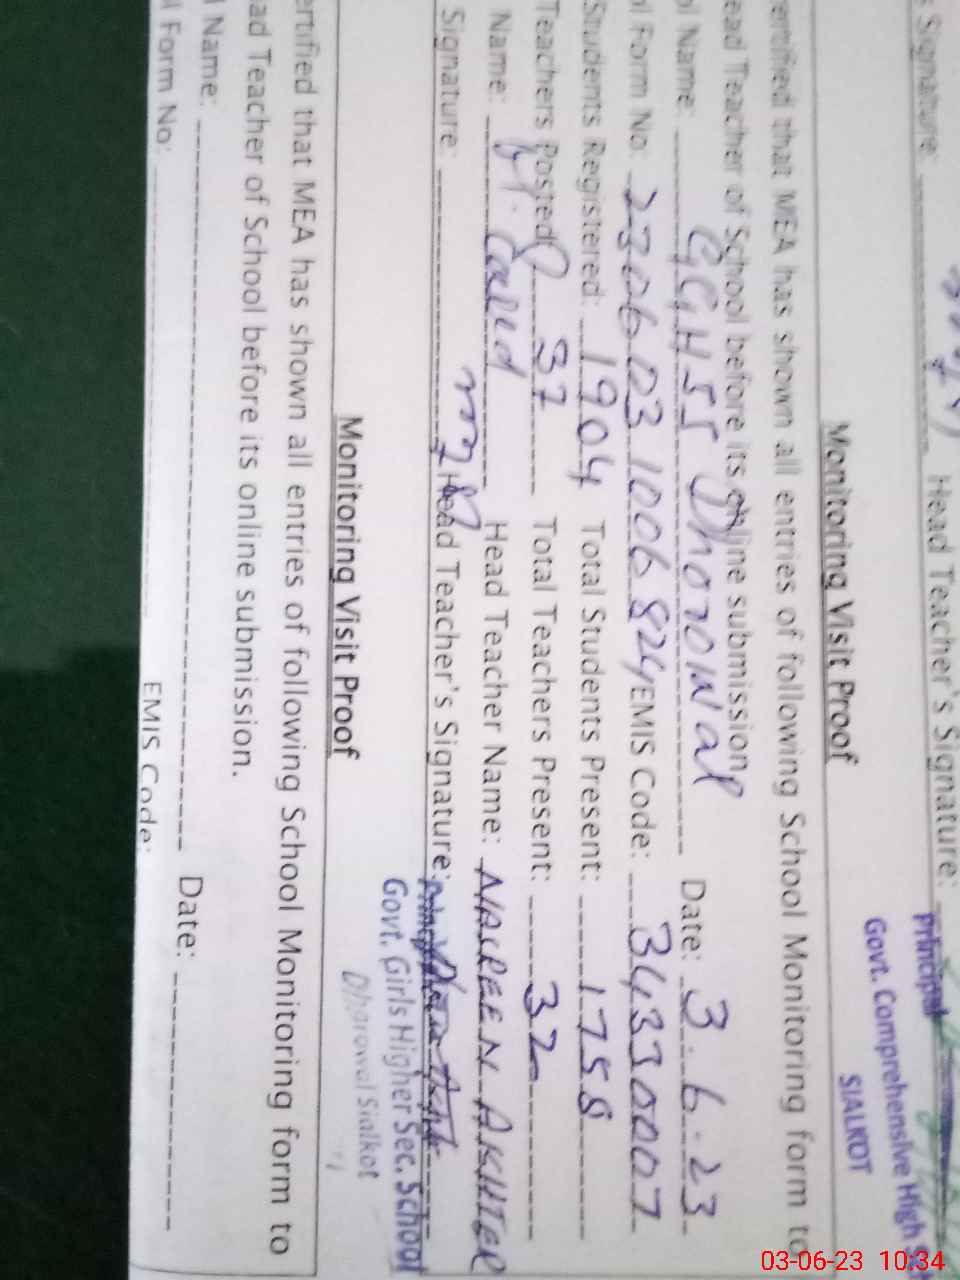 s Signature: Head Teacher's Signature:
Principal
Govt. Comprehensive High
SIALKOT
Monitoring Visit Proof
ertified that MEA has shown all entries of following School Monitoring form to
ead Teacher of School before its online submission
ol Name: GGHSS Dharowal Date: 3.6.23
ol Form No: 230603 1006824 EMIS Code: 34330007
Students Registered: 1904 Total Students Present: 1758
Teachers Posted 37 Total Teachers Present: 32
Name: M. Head Teacher Name: NASREEN AKHTER
Signature: Head Teacher's Signature:
Govt. Girls Higher Sec. School
Dharowal Sialkot
Monitoring Visit Proof
ertified that MEA has shown all entries of following School Monitoring form to
ad Teacher of School before its online submission.
l Name: Date:
l Form No: EMIS Code:
03-06-23 10:34